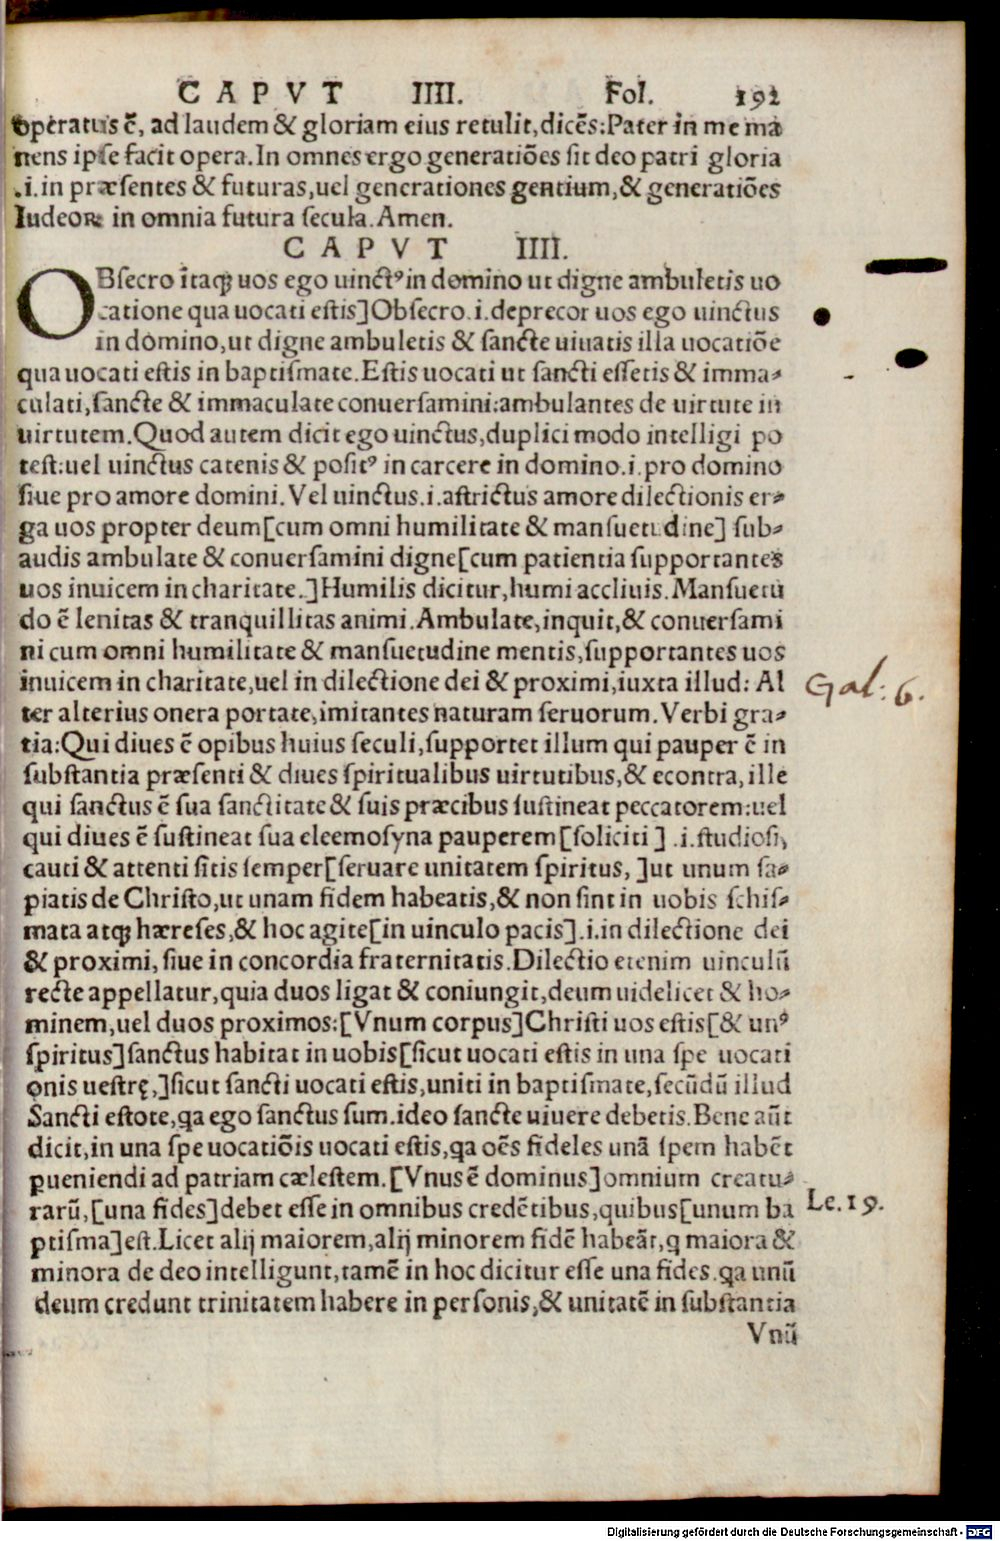 CAPVT IIII. Fol. 192
operatus ē, ad laudem & gloriam eius retulit, dicēs: Pater in me ma
nens ipse facit opera. In omnes ergo generatiōes sit deo patri gloria
.i. in præsentes & futuras, uel generationes gentium, & generatiōes
Iudeoꝝ in omnia futura secula. Amen.
CAPVT IIII.
OBsecro itaqꝫ uos ego uinctꝰ in domino ut digne ambuletis uo
catione qua uocati estis] Obsecro .i. deprecor uos ego uinctus
in domino, ut digne ambuletis & sancte uiuatis illa uocatiōe
qua uocati estis in baptismate. Estis uocati ut sancti essetis & imma-
culati, sancte & immaculate conuersamini: ambulantes de uirtute in
uirtutem. Quod autem dicit ego uinctus, duplici modo intelligi po
test: uel uinctus catenis & positꝰ in carcere in domino .i. pro domino
siue pro amore domini. Vel uinctus .i. astrictus amore dilectionis er-
ga uos propter deum [cum omni humilitate & mansuetudine] sub-
audis ambulate & conuersamini digne [cum patientia supportantes
uos inuicem in charitate.] Humilis dicitur, humi accliuis. Mansuetu
do ē lenitas & tranquillitas animi. Ambulate, inquit, & conuersami
ni cum omni humilitate & mansuetudine mentis, supportantes uos
inuicem in charitate, uel in dilectione dei & proximi, iuxta illud: Al
ter alterius onera portate, imitantes naturam seruorum. Verbi gra-
Gal: 6.
tia: Qui diues ē opibus huius seculi, supportet illum qui pauper ē in
substantia præsenti & diues spiritualibus uirtutibus, & econtra, ille
qui sanctus ē sua sanctitate & suis præcibus sustineat peccatorem: uel
qui diues ē sustineat sua eleemosyna pauperem [soliciti] .i. studiosi,
cauti & attenti sitis semper [seruare unitatem spiritus,] ut unum sa-
piatis de Christo, ut unam fidem habeatis, & non sint in uobis schis-
mata atqꝫ hæreses, & hoc agite [in uinculo pacis] .i. in dilectione dei
& proximi, siue in concordia fraternitatis. Dilectio etenim uinculū
recte appellatur, quia duos ligat & coniungit, deum uidelicet & ho-
minem, uel duos proximos: [Vnum corpus] Christi uos estis [& unꝰ
spiritus] sanctus habitat in uobis [sicut uocati estis in una spe uocati
onis uestrę,] sicut sancti uocati estis, uniti in baptismate, secūdū illud
Sancti estote, qa ego sanctus sum. ideo sancte uiuere debetis. Bene aūt
dicit, in una spe uocatiōis uocati estis, qa oēs fideles unā spem habēt
ꝑueniendi ad patriam cælestem. [Vnus ē dominus] omnium creatu-
rarū, [una fides] debet esse in omnibus credētibus, quibus [unum ba
Le. 19.
ptisma] est. Licet alij maiorem, alij minorem fidē habeāt, q maiora &
minora de deo intelligunt, tamē in hoc dicitur esse una fides. qa unū
deum credunt trinitatem habere in personis, & unitatē in substantia
Vnū
Digitalisierung gefördert durch die Deutsche Forschungsgemeinschaft - DFG